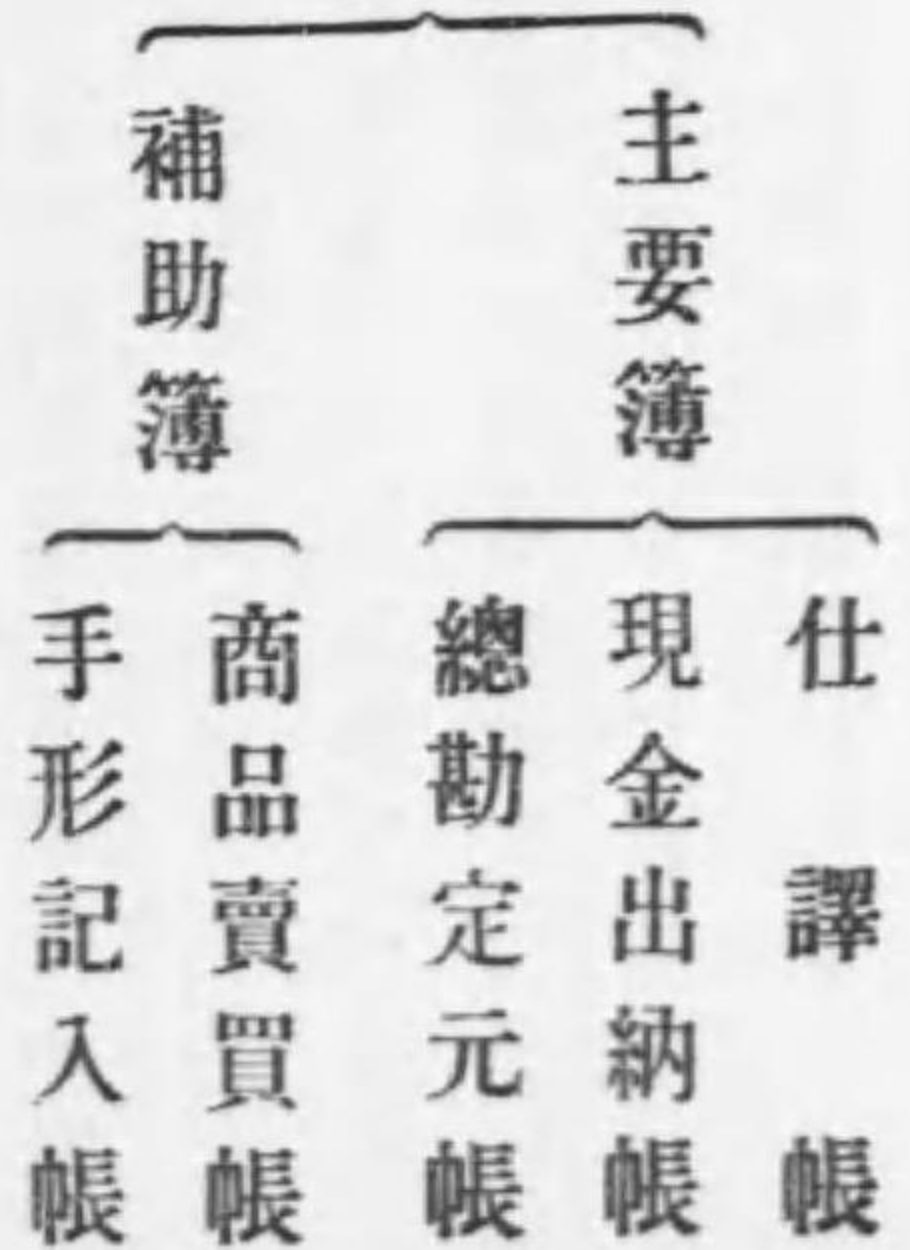 主要簿
仕譯帳
現金出納帳
總勘定元帳
補助簿
商品賣買帳
手形記入帳